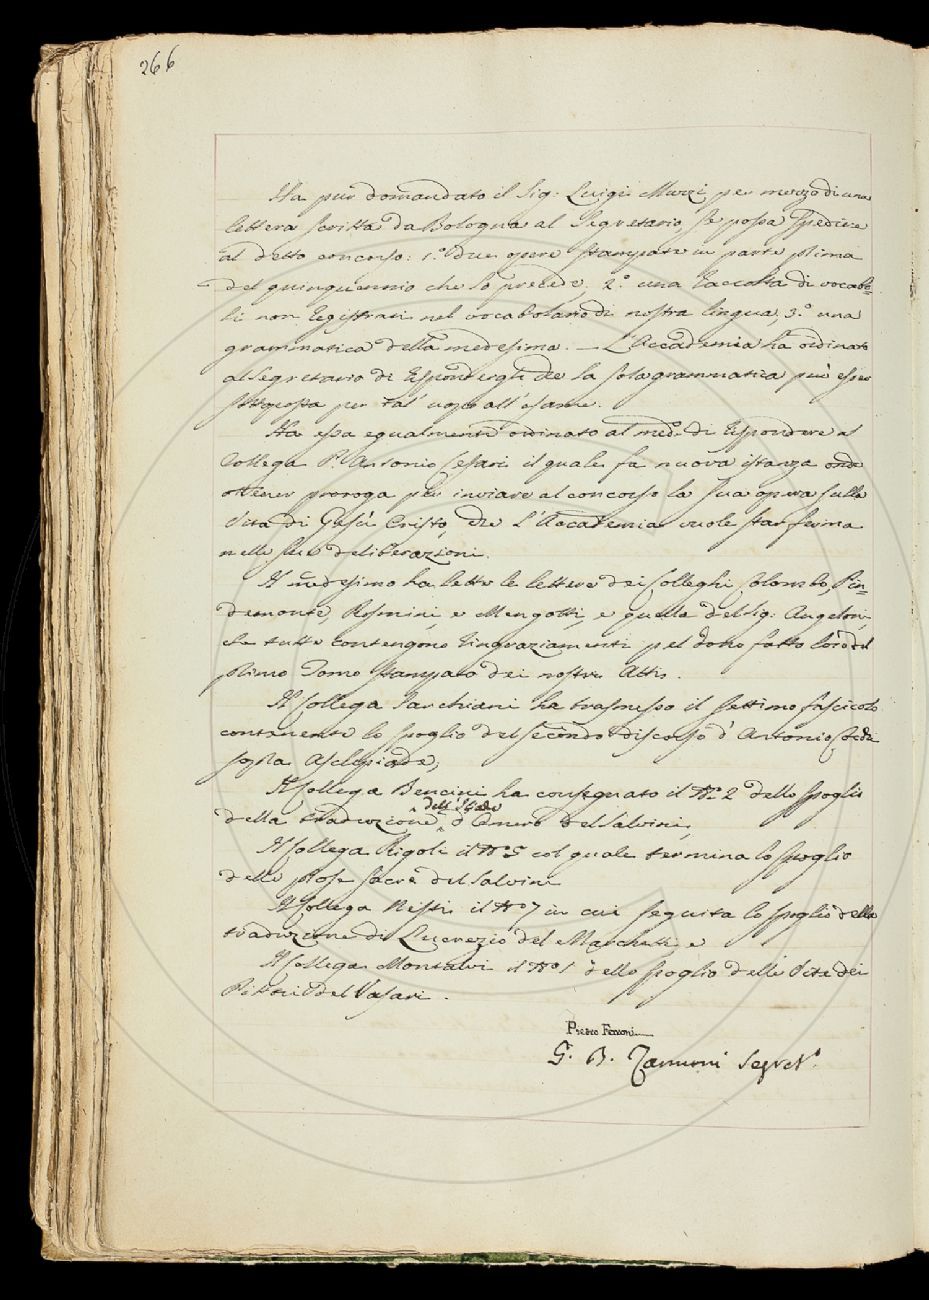 266
Ha pur domandato il Sig. Luigi Muzzi per mezzo di una
lettera scritta da Bologna al Segretario se possa spedire
al detto concorso: 1.° due opere stampate in parte prima
del quinquennio che lo precede, 2.° una raccolta di vocabo=
li non registrati nel vocabolario di nostra lingua, 3.° una
grammatica della medesima. — L'Accademia ha ordinato
al Segretario di rispondergli che la sola grammatica può esser
sottoposta per tal' uopo all'esame.
Ha essa egualmente ordinato al med.° di rispondere al
Collega P. Antonio Cesari il quale fa nuova istanza onde
ottener proroga per inviare al concorso la sua opera sulla
Vita di Gesù Cristo, che L'Accademia vuole star ferma
nelle sue deliberazioni.
Il medesimo ha letto le lettere dei Colleghi Colombo, Pin=
demonte, Rosmini e Mengotti, e quella del Sig. Angeloni,
che tutte contengono ringraziamenti pel dono fatto loro del
primo Tomo stampato dei nostri Atti.
Il Collega Sarchiani ha trasmesso il settimo fascicolo
contenente lo spoglio del secondo discorso d'Antonio Cocchi
sopra Asclepiade,
Il Collega Bencini ha consegnato il N.° 2 dello spoglio
dell'Iliade
della traduzione d'Omero del Salvini,
Il Collega Rigoli il N.° 5 col quale termina lo spoglio
delle prose sacre del Salvini
Il Collega Nesti il N.° 7 in cui seguita lo spoglio della
traduzione di Lucrezio del Marchetti, e
Il Collega Montalvi il N.° 1 dello spoglio delle Vite dei
Pittori del Vasari.
Pietro Ferroni
G. B. Zannoni Segret.°